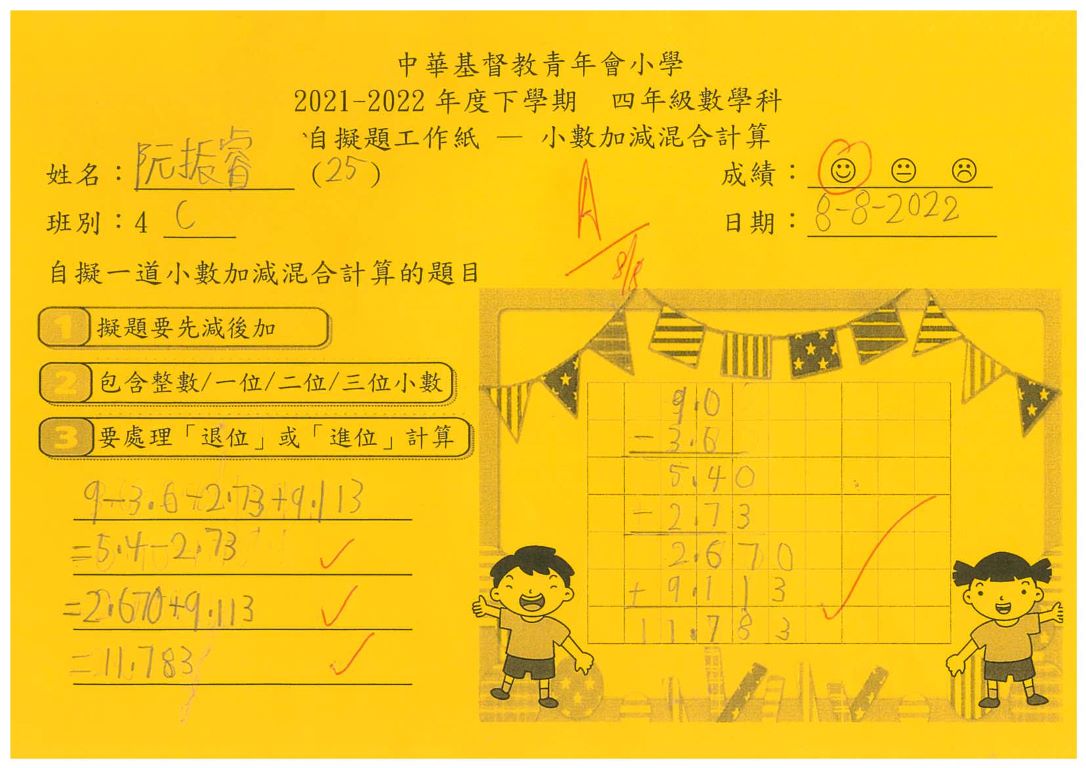 中華基督教青年會小學
2021-2022 年度下學期 四年級數學科
自擬題工作紙 — 小數加減混合計算
姓名：阮振睿 (25) 成績：
班別：4 C 日期：8-8-2022
A
8/8
自擬一道小數加減混合計算的題目
1 擬題要先減後加
2 包含整數/一位/二位/三位小數
3 要處理「退位」或「進位」計算
9-3.6-2.73+9.113
=5.4-2.73
=2.670+9.113
=11.783
9.0
-3.6
5.40
-2.73
2.670
+9.113
11.783